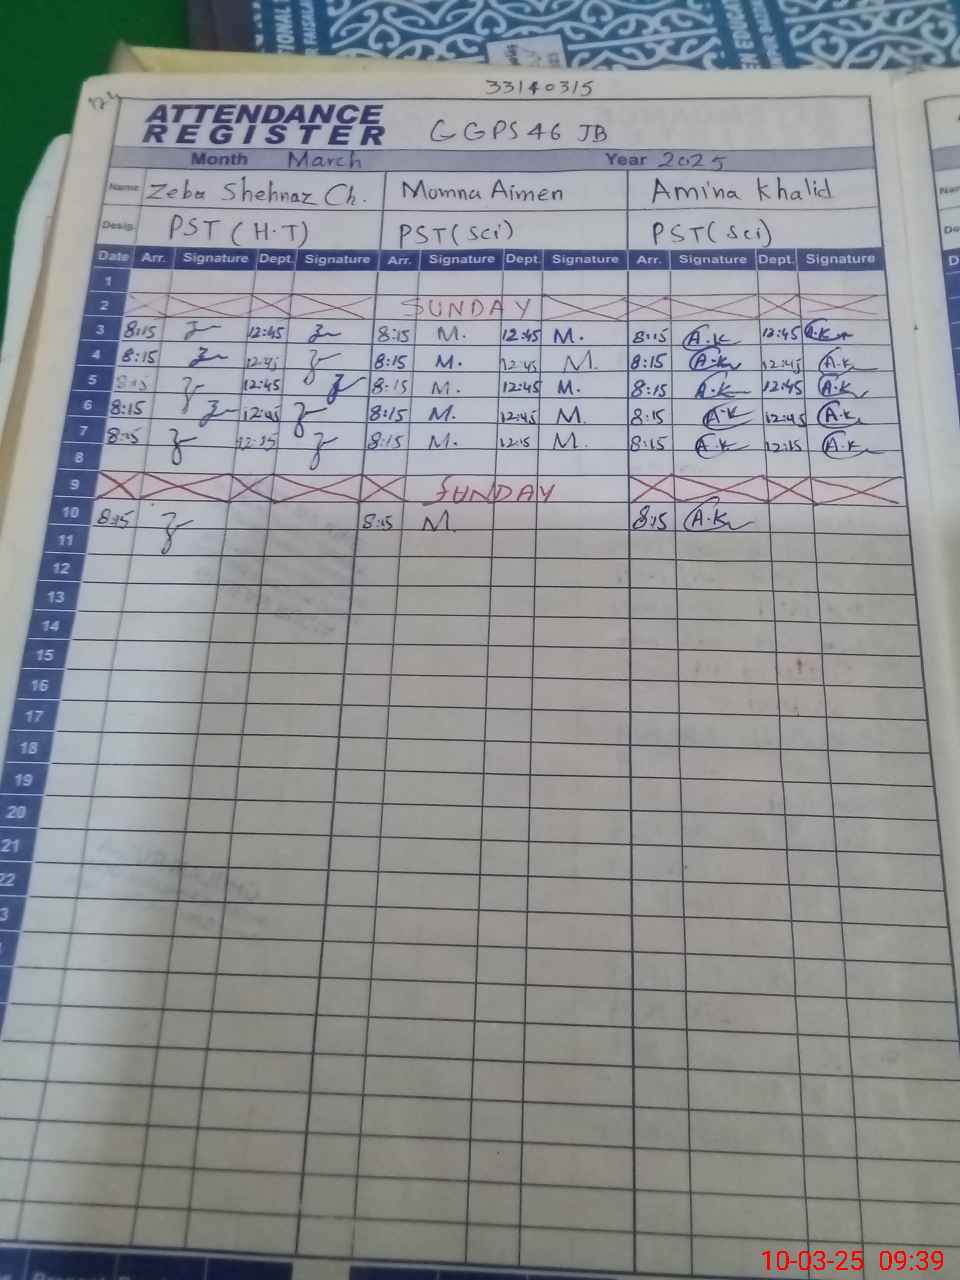 33140315
ATTENDANCE
REGISTER GGPS 46 JB
Month March Year 2025
Name Zeba Shehnaz Ch. Momna Aimen Amina Khalid
Desig. PST (H.T) PST (Sci) PST (Sci)
Date Arr. Signature Dept. Signature Arr. Signature Dept. Signature Arr. Signature Dept. Signature
1
2 SUNDAY
3 8:15 12:45 8:15 M. 12:45 M. 8:15 A.K 12:45 A.K
4 8:15 12:45 8:15 M. 12:45 M. 8:15 A.K 12:45 A.K
5 8:15 12:45 8:15 M. 12:45 M. 8:15 A.K 12:45 A.K
6 8:15 12:45 8:15 M. 12:45 M. 8:15 A.K 12:45 A.K
7 8:15 12:15 8:15 M. 12:15 M. 8:15 A.K 12:15 A.K
8
9 SUNDAY
10 8:15 8:15 M. 8:15 A.K
11
12
13
14
15
16
17
18
19
20
21
22
10-03-25 09:39